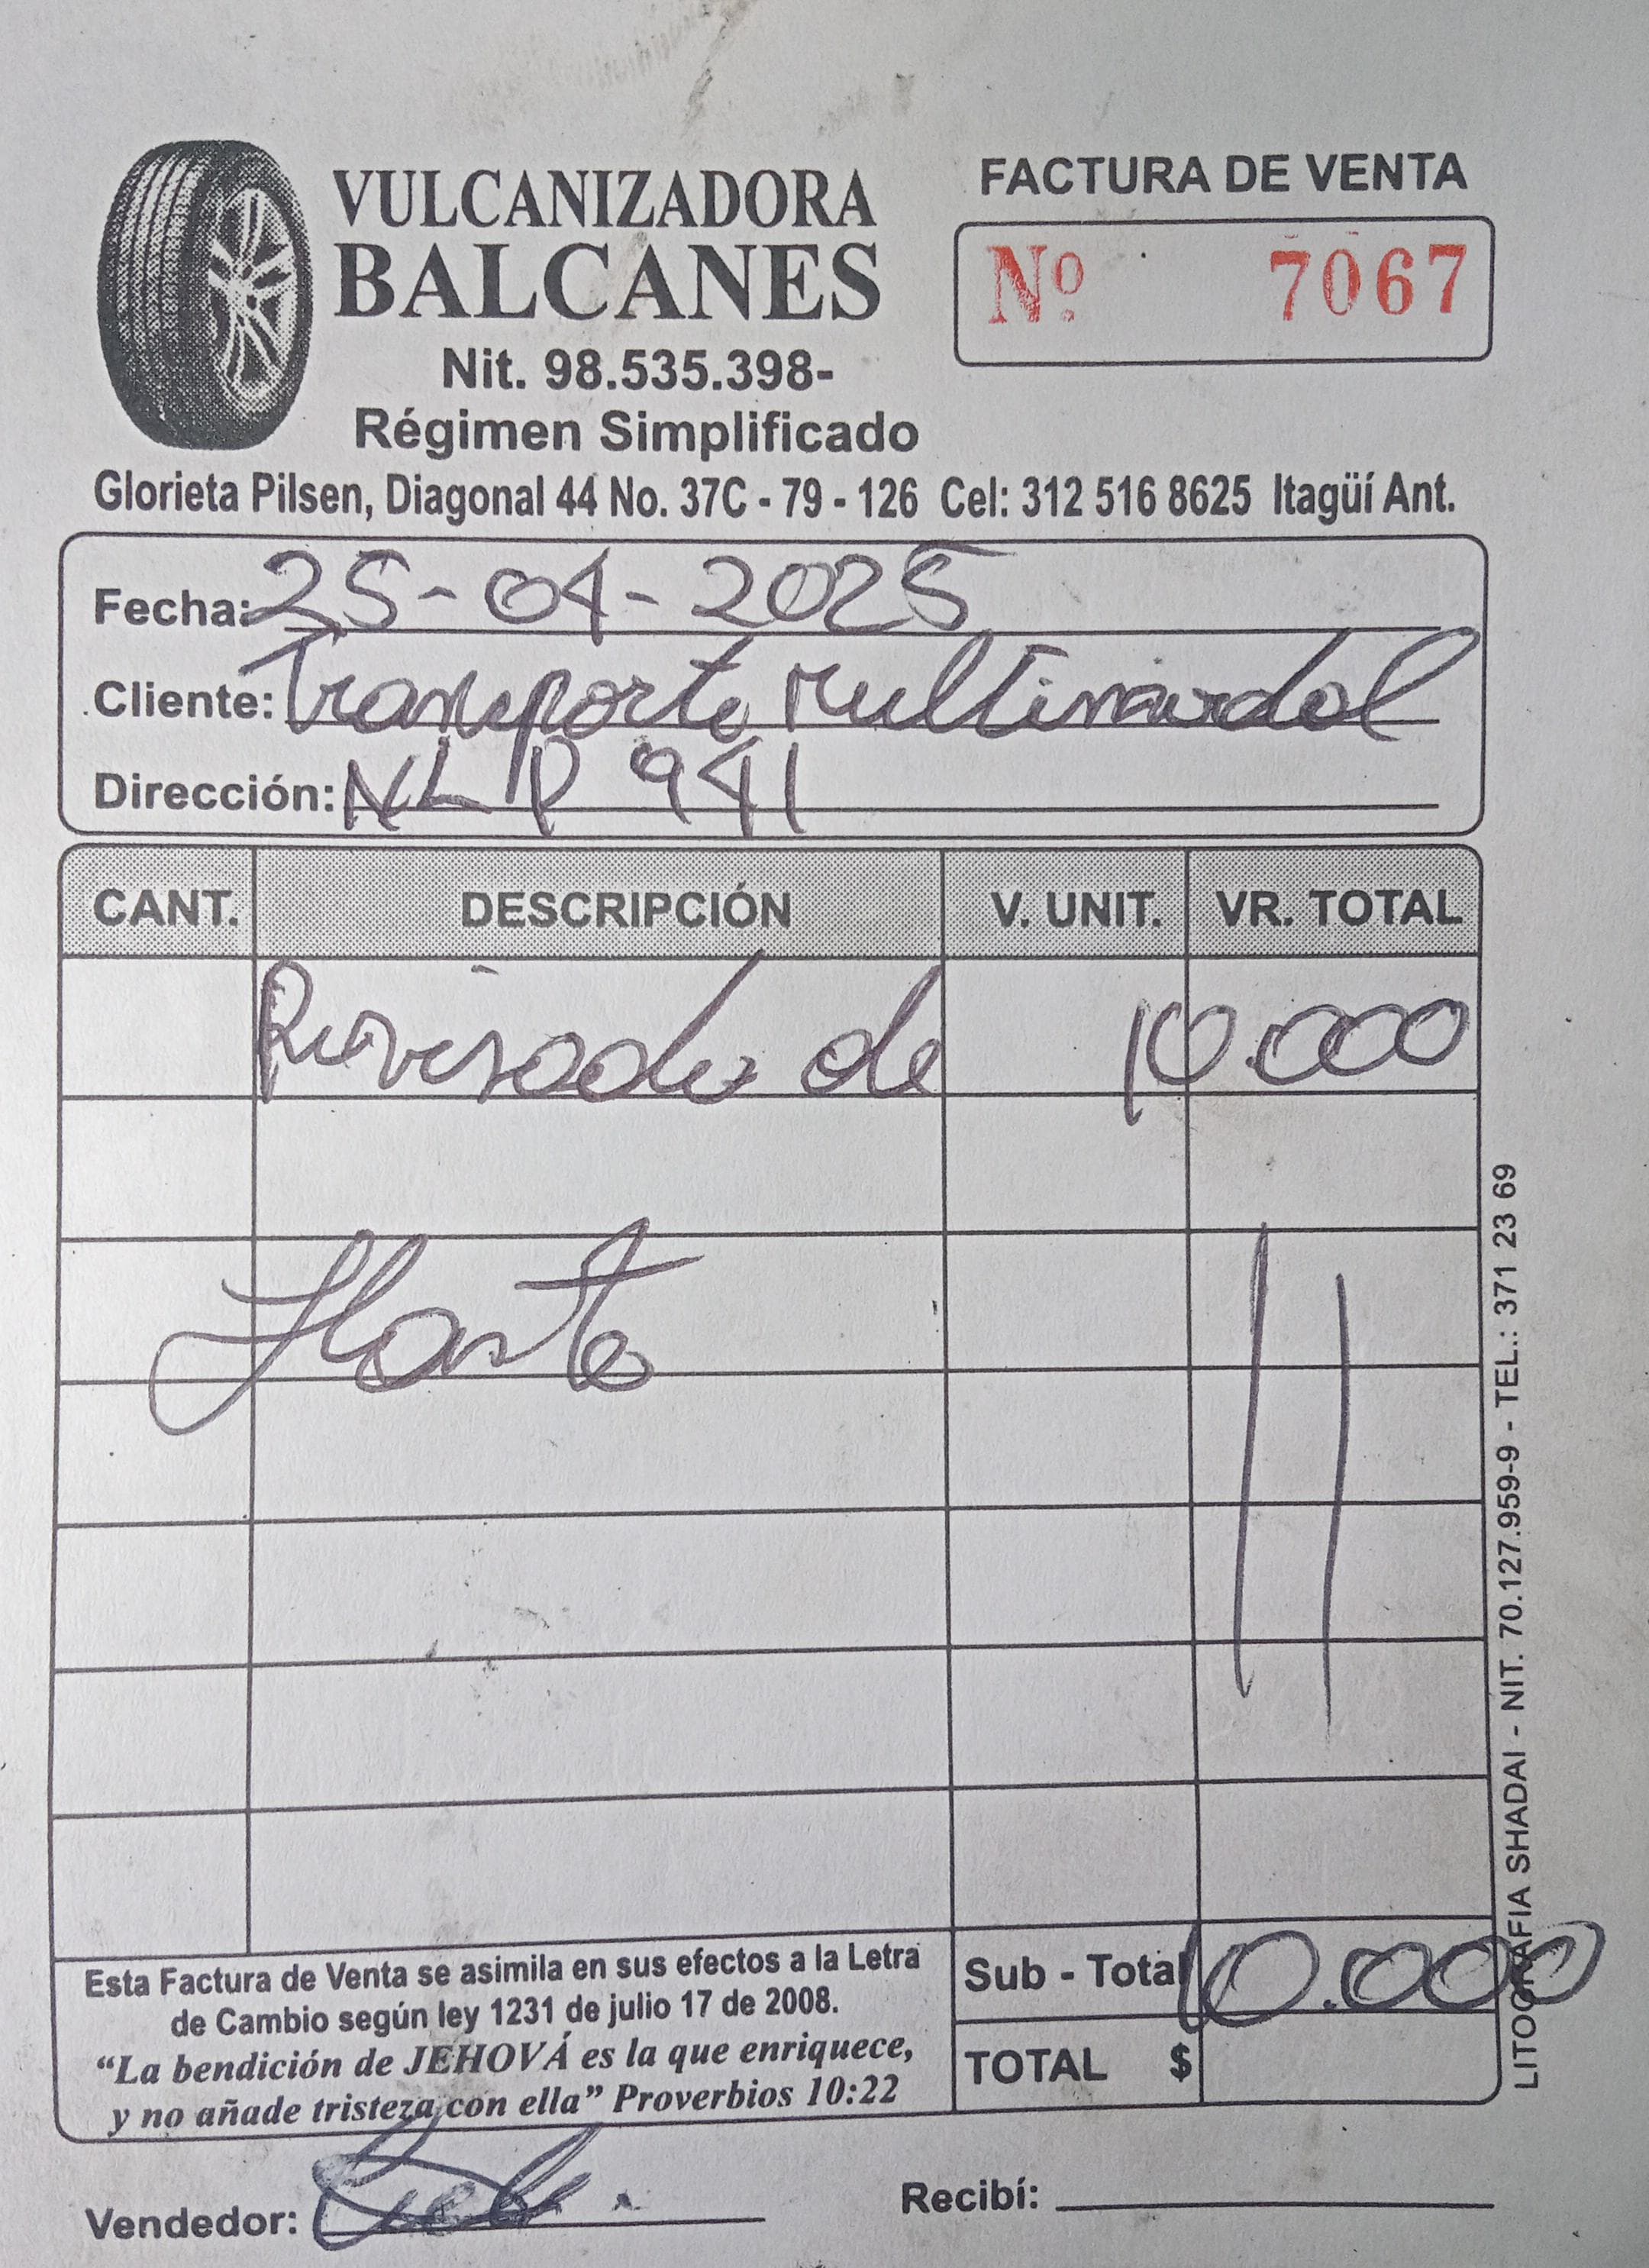 VULCANIZADORA
BALCANES
Nit. 98.535.398-
Régimen Simplificado
FACTURA DE VENTA
Nº 7067
Glorieta Pilsen, Diagonal 44 No. 37C - 79 - 126 Cel: 312 516 8625 Itagüí Ant.
Fecha: 25-04-2025
Cliente: Transporte Multimodal
Dirección: NLP 941
CANT. DESCRIPCIÓN V. UNIT. VR. TOTAL
de 10.000
Llanta
Esta Factura de Venta se asimila en sus efectos a la Letra
de Cambio según ley 1231 de julio 17 de 2008.
“La bendición de JEHOVÁ es la que enriquece,
y no añade tristeza con ella” Proverbios 10:22
Sub - Total 10.000
TOTAL $
Vendedor:
Recibí:
LITOGRAFIA SHADAI - NIT. 70.127.959-9 - TEL.: 371 23 69